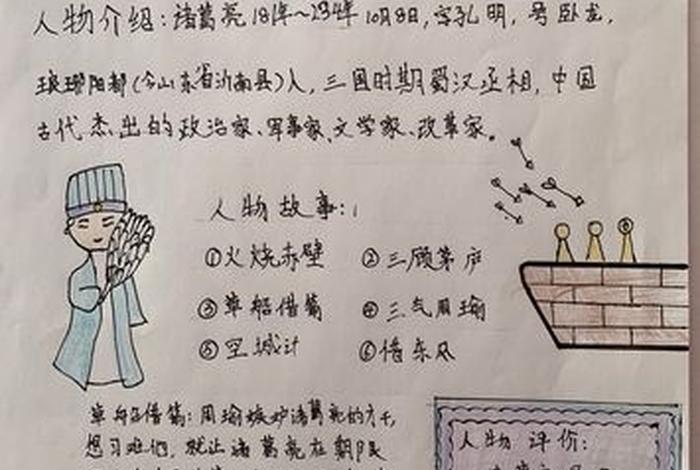 人物介绍:诸葛亮181年～234年10月8日,字孔明,号卧龙,
琅琊阳都(今山东省沂南县)人,三国时期蜀汉丞相,中国
古代杰出的政治家、军事家、文学家、改革家。
人物故事:
①火烧赤壁 ②三顾茅庐
③草船借箭 ④三气周瑜
⑤空城计 ⑥借东风
草船借箭:周瑜嫉妒诸葛亮的才干,
想刁难他,就让诸葛亮在
人物评价: